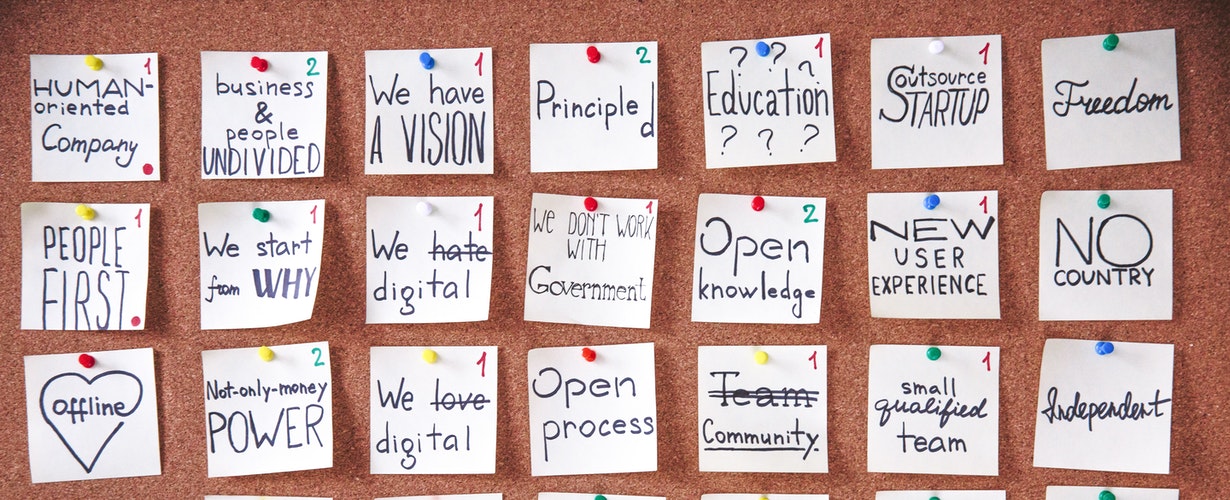 HUMAN-
oriented
Company
1
business
&
people
UNDIVIDED
2
We have
A VISION
1
Principled
2
? ? ?
Education
? ? ?
1
Outsource
STARTUP
1
Freedom
PEOPLE
FIRST
1
We start
from WHY
1
We hate
digital
1
WE DON'T WORK
WITH
Government
1
Open
knowledge
2
NEW
USER
EXPERIENCE
1
NO
COUNTRY
offline
Not-only-money
POWER
2
We love
digital
1
Open
process
Team
Community.
1
small
qualified
team
1
Independent